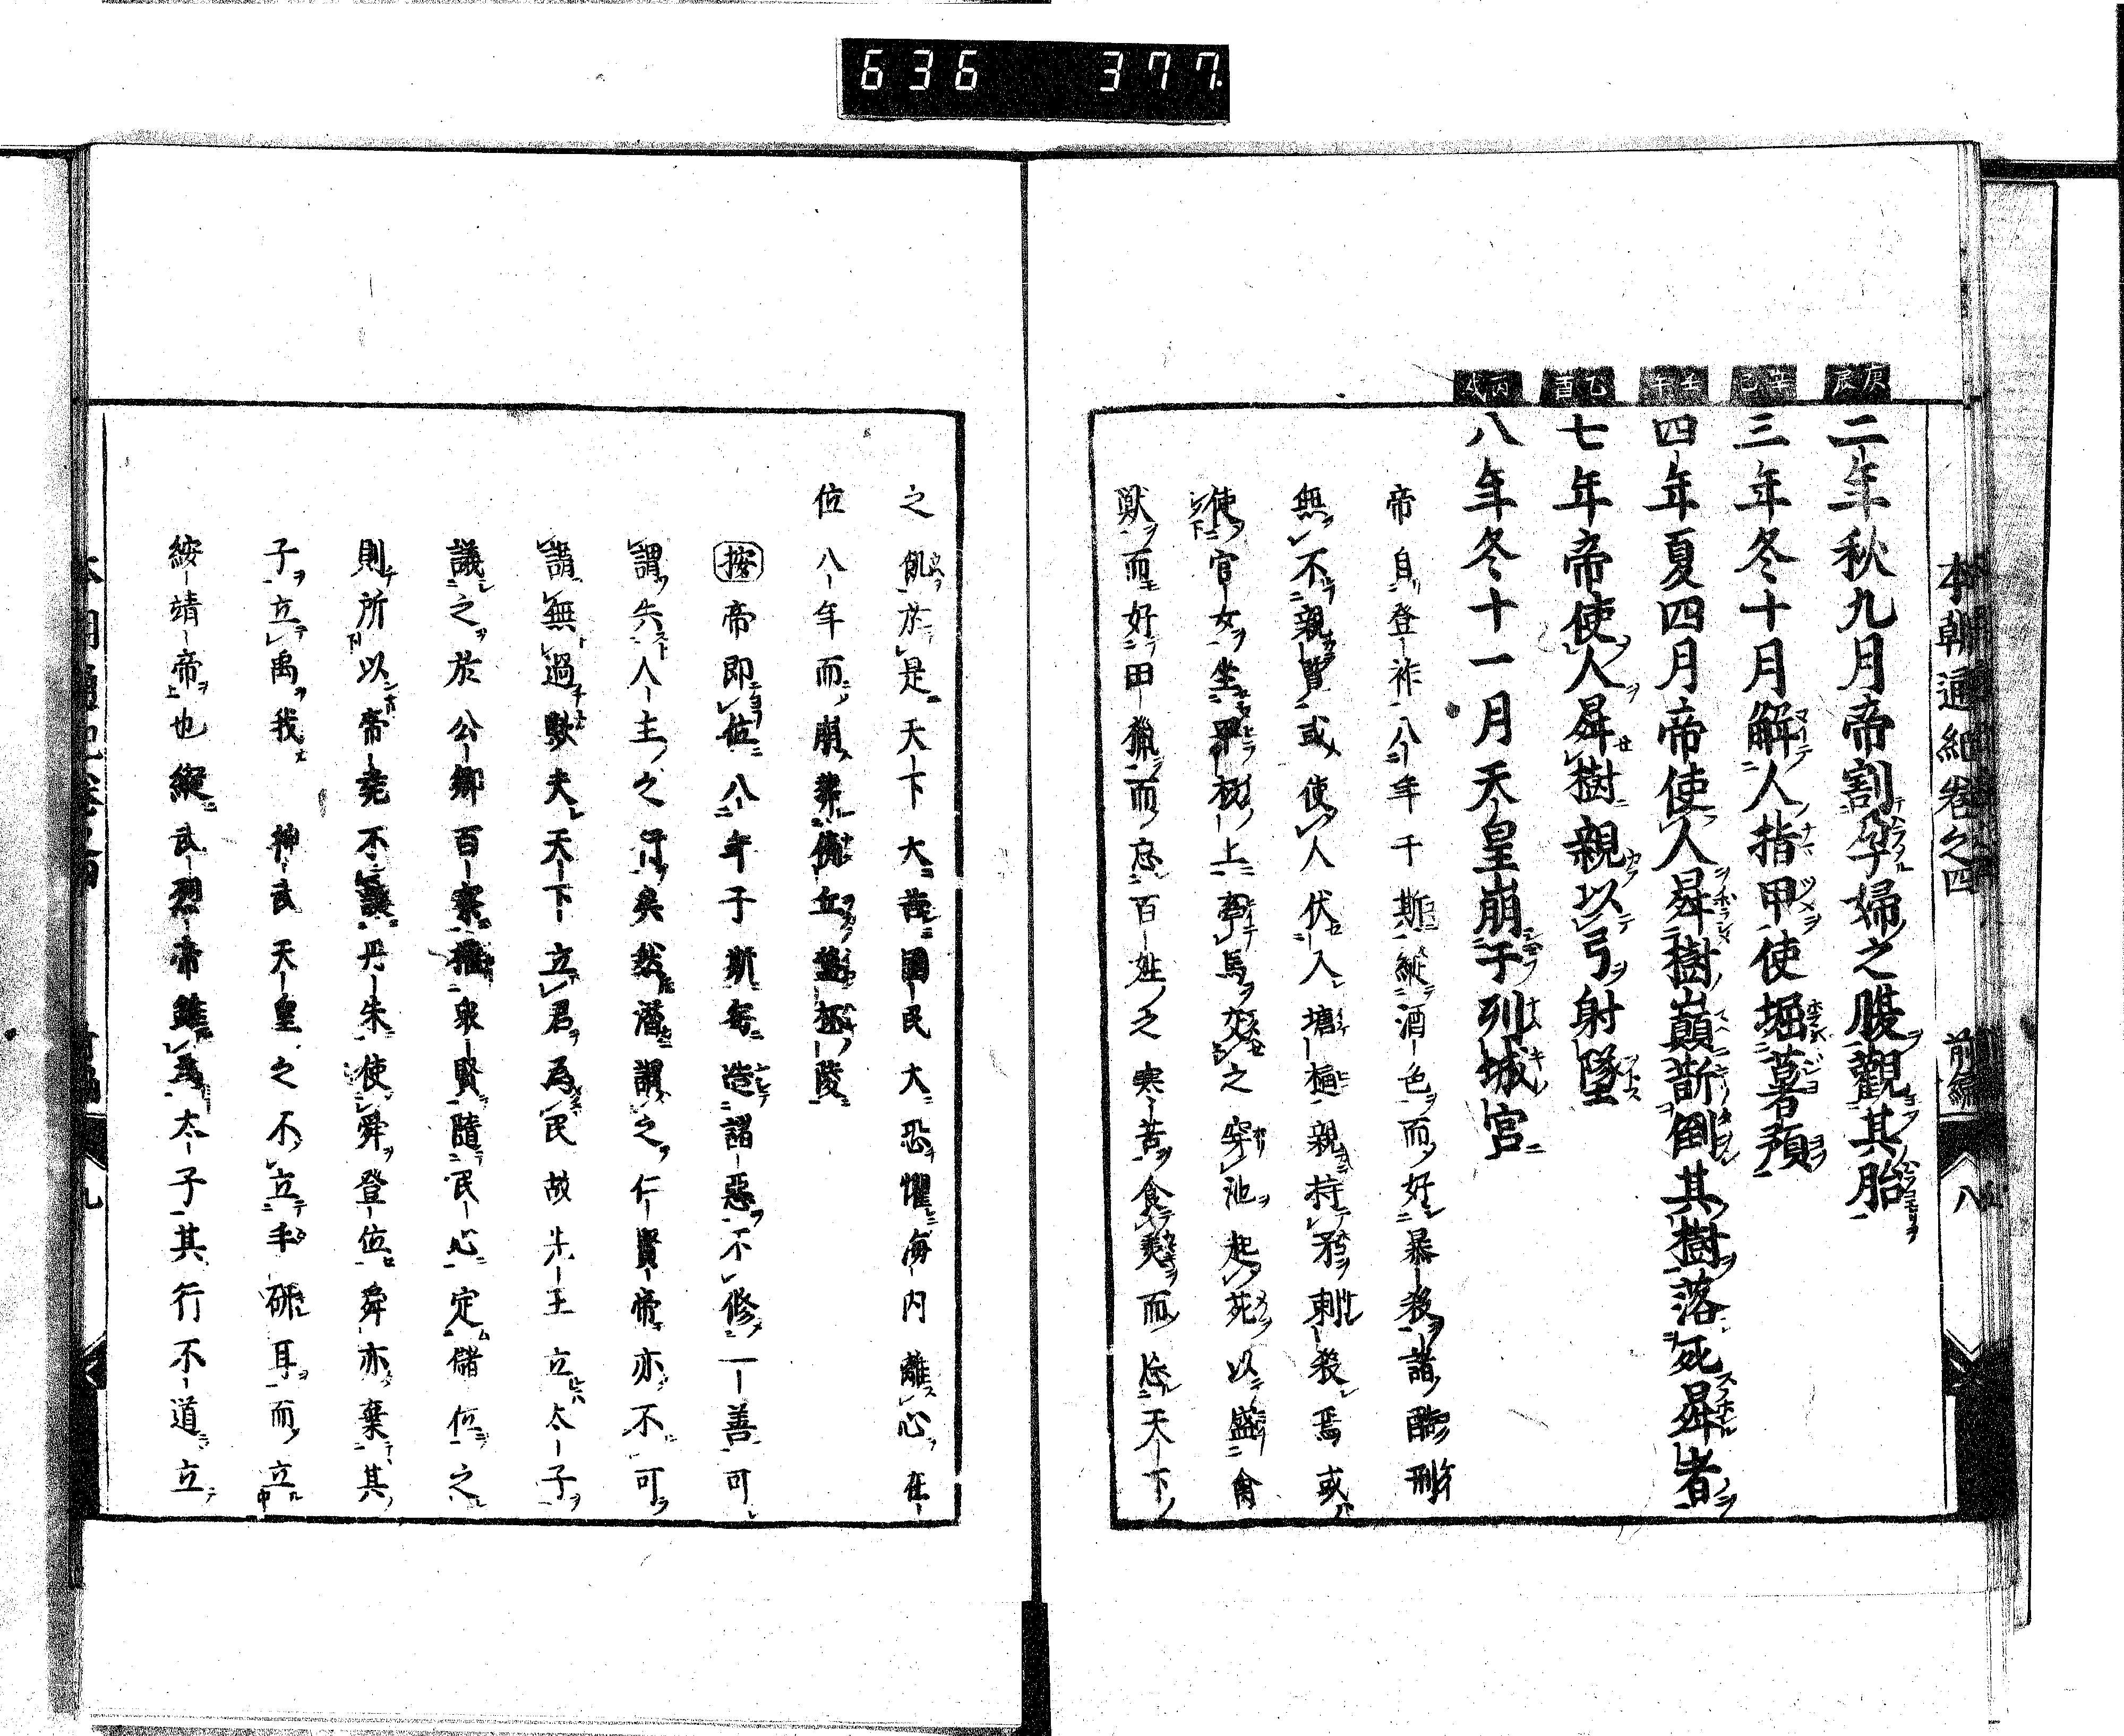 636 377
本朝通紀卷之四 前編 八
庚辰
二年秋九月帝割孕婦之腹觀其胎
辛巳
三年冬十月解人指甲使堀薯蕷
壬午
四年夏四月帝使人昇樹巔斮倒其樹落死昇者
乙酉
七年帝使人昇樹親以弓射墜
丙戌
八年冬十一月天皇崩于列城宮
帝自登祚八年于斯縱酒色而好暴殺諸酷刑
無不親覽或使人伏入塘樋親持矛刺殺焉或
使官女坐平板上牽馬交之穿池起苑以盛禽
獸而好田獵而忘百姓之寒苦食美而忘天下
之飢於是天下大苦國民大恐懼海内離心在
位八年而崩葬傍丘磐坏陵
按帝即位八年于斯每造諸惡不修一善可
謂失人主之行矣然潛謂之仁賢帝亦不可
謂無過歟夫天下立君爲民故先王立太子
議之於公卿百寮擢衆賢隨民心定儲位之
則所以帝堯不讓丹朱使舜登位舜亦棄其
子立禹我 神武天皇之不立手研耳而立
綏靖帝也縱武烈帝雖爲太子其行不道立